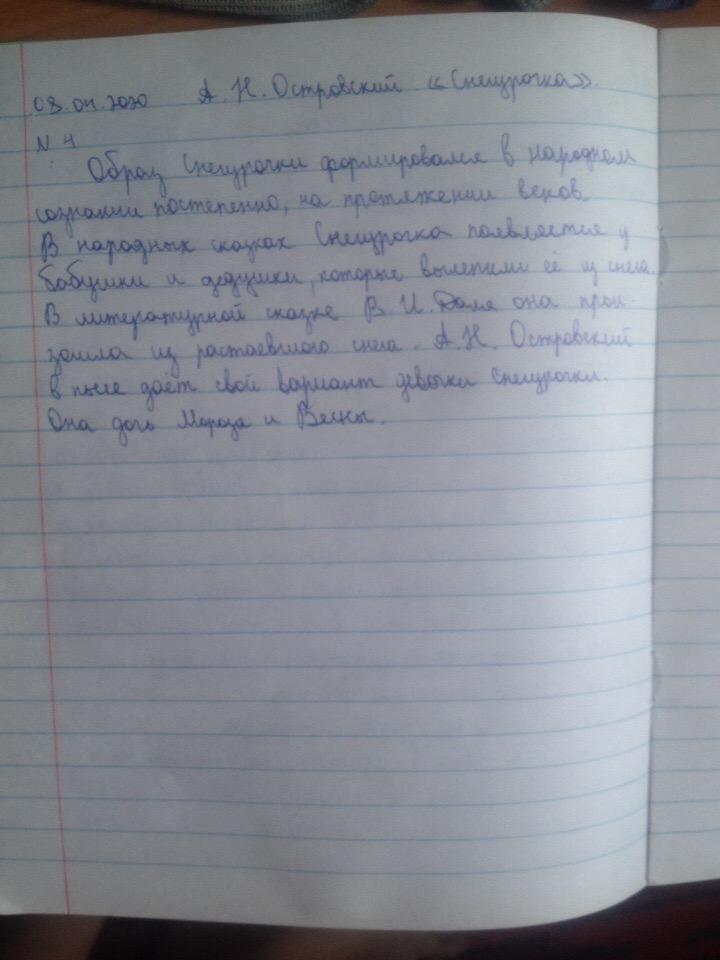 08.04.2020 А. Н. Островский «Снегурочка».
N 4
Образ Снегурочки формировался в народном
сознании постепенно, на протяжении веков.
В народных сказках Снегурочка появляется у
бабушки и дедушки, которые вылепили её из снега.
В литературной сказке В. И. Даля она прои-
зошла из растаевшего снега. А.Н. Островский
в пьесе даёт свой вариант девочки Снегурочки.
Она дочь Мороза и Весны.